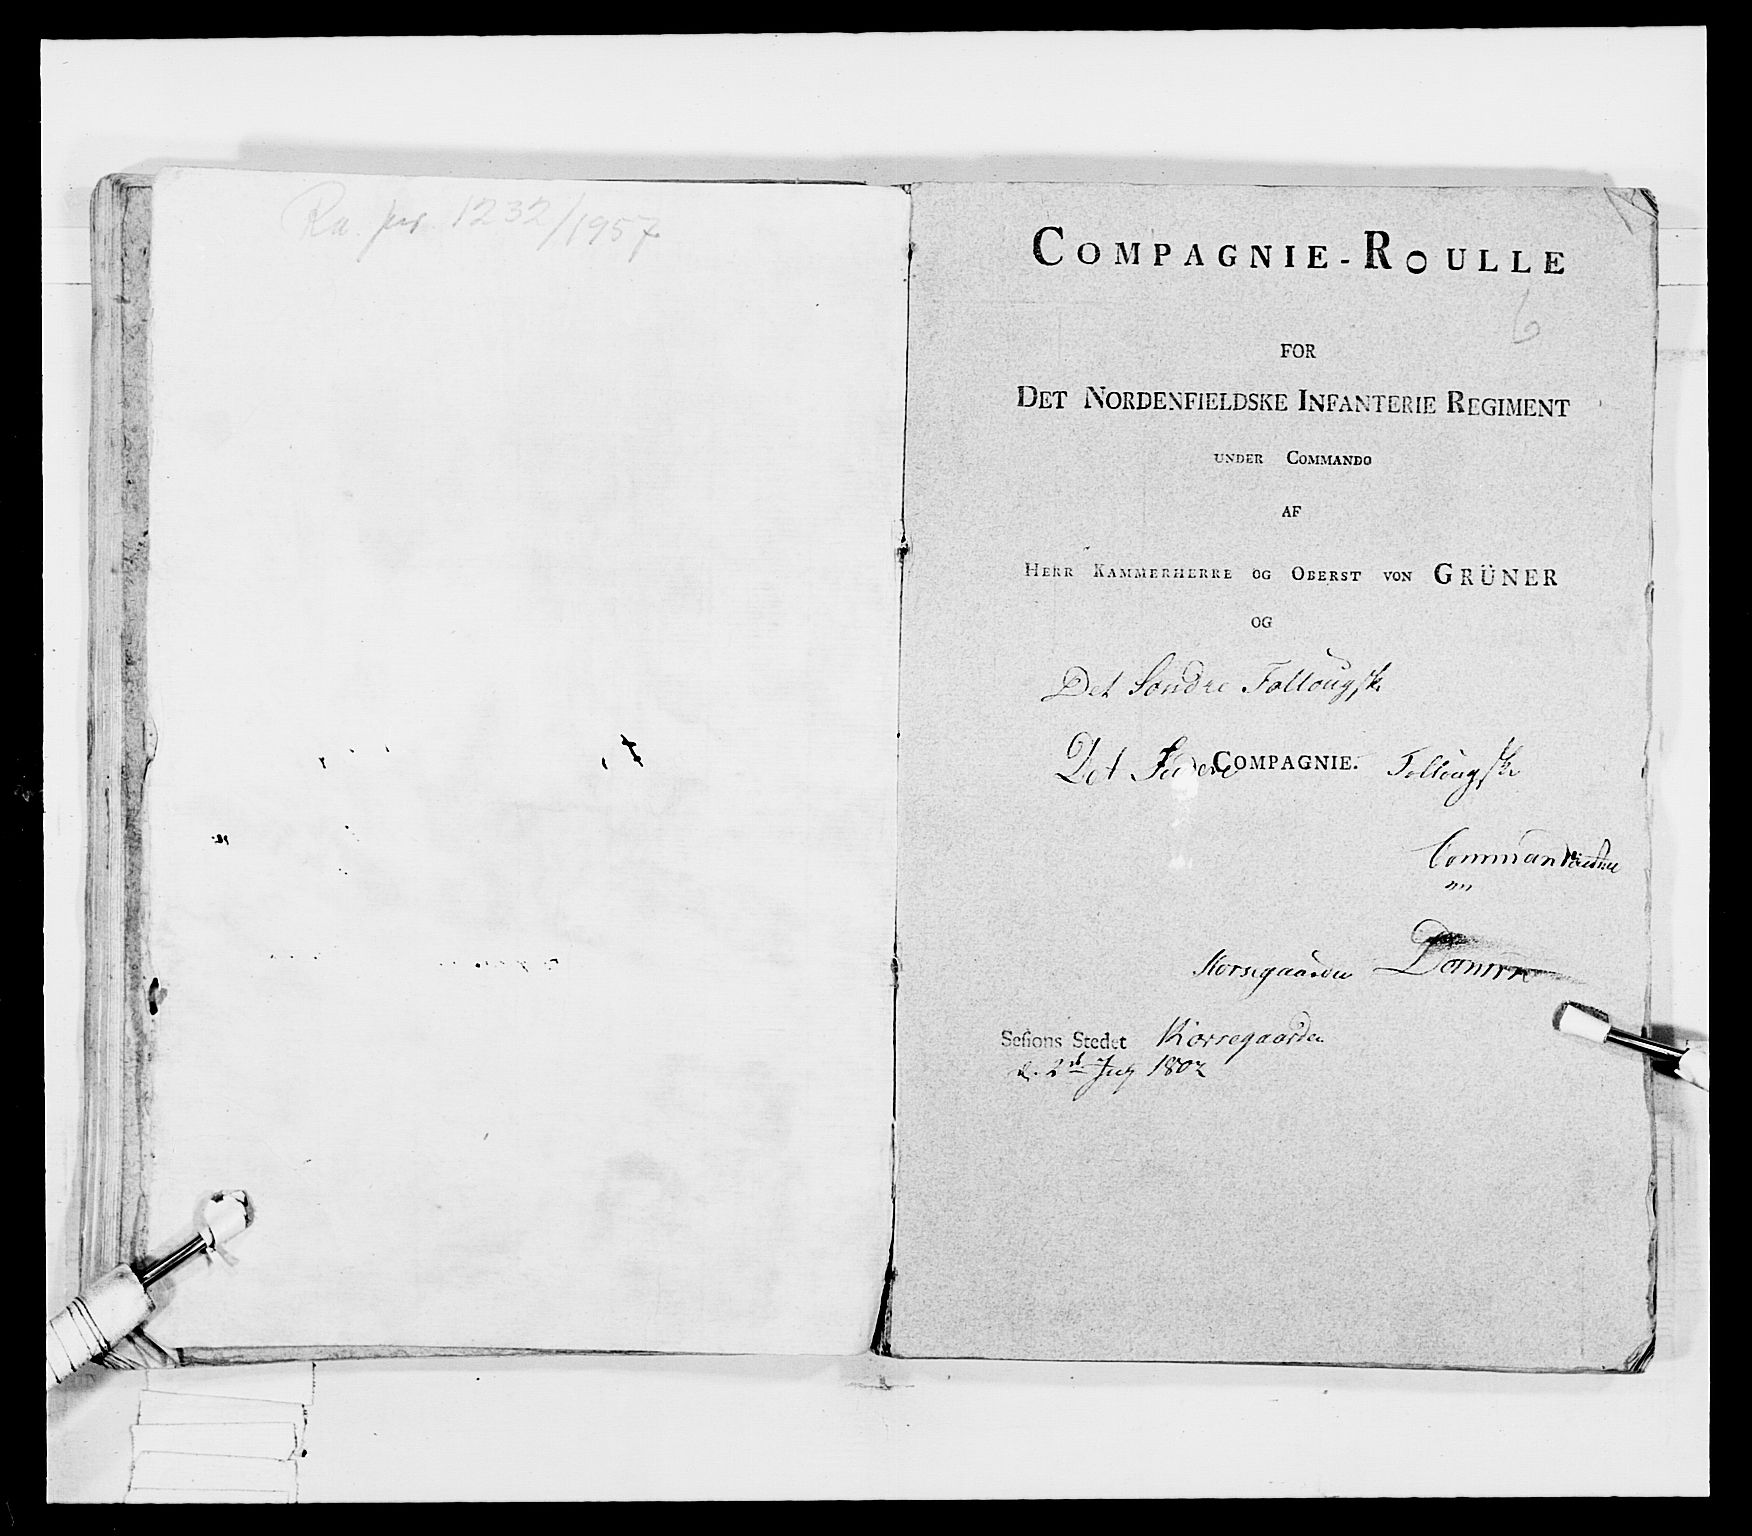 Ra. jnr. 1232/1957
COMPAGNIE-ROULLE
6
FOR
DET NORDENFIELDSKE INFANTERIE REGIMENT
UNDER COMMANDO
AF
HERR KAMMERHERRE OG OBERST VON GRÜNER
OG
Det Søndre Follougske
Det Søndre COMPAGNIE. Follougske
Korsegaarden
Sesions Stedet Korsegaarden
d. 2d July 1802